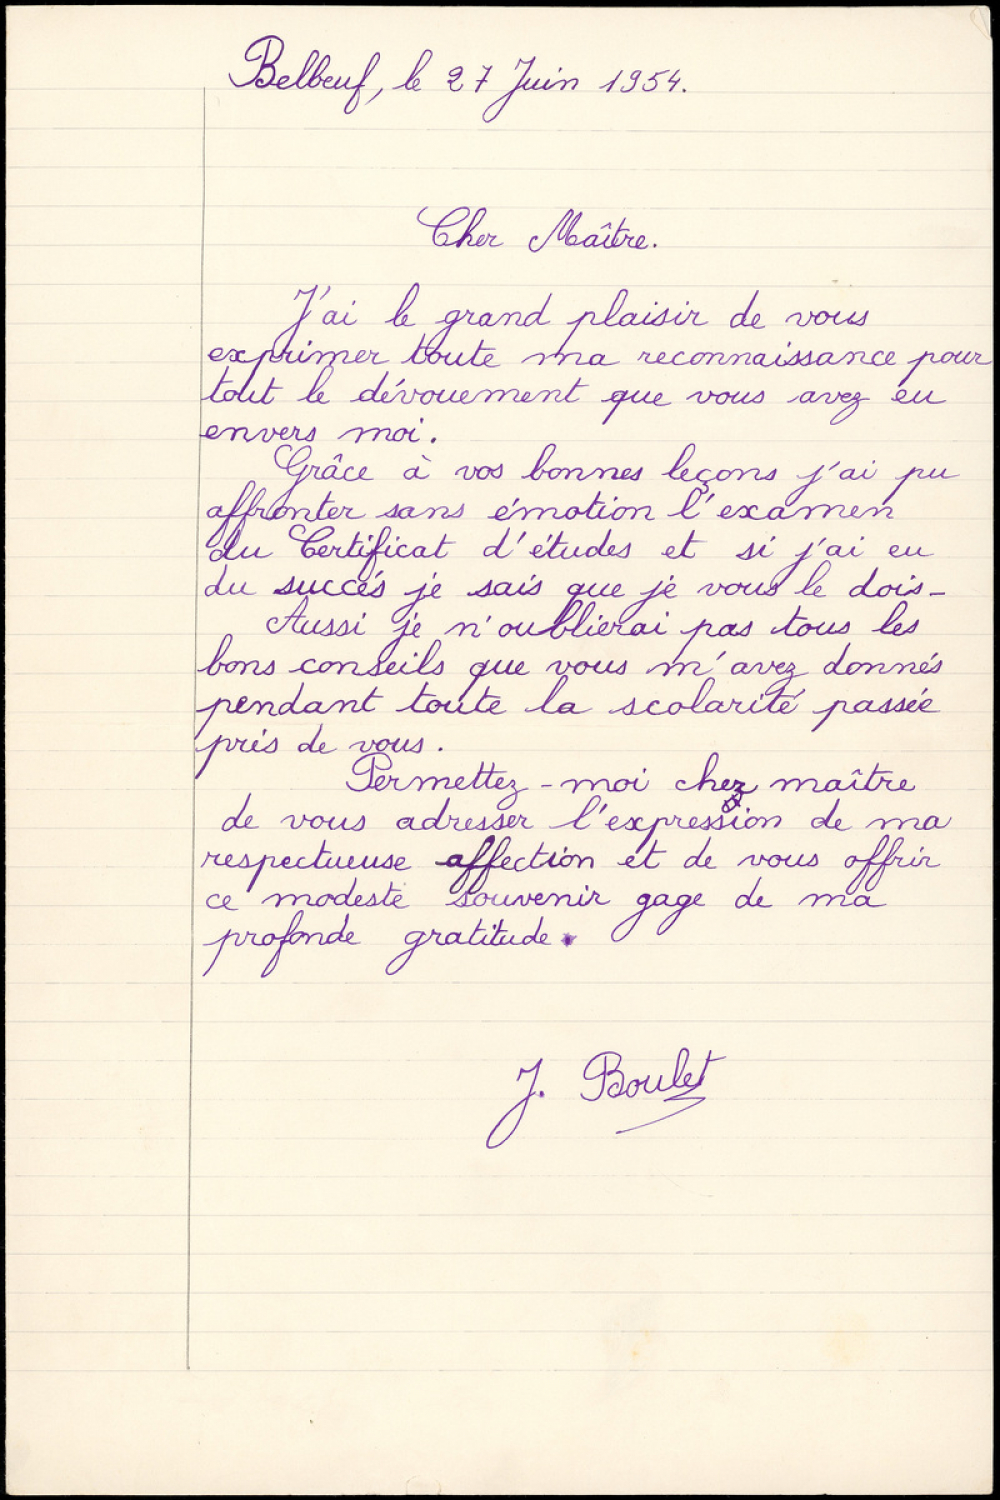 Belbeuf, le 27 Juin 1954.
Cher Maître.
J'ai le grand plaisir de vous
exprimer toute ma reconnaissance pour
tout le dévouement que vous avez eu
envers moi.
Grâce à vos bonnes leçons j'ai pu
affronter sans émotion l'examen
du Certificat d'études et si j'ai eu
du succés je sais que je vous le dois-
Aussi je n'oublierai pas tous les
bons conseils que vous m'avez donnés
pendant toute la scolarité passée
prés de vous.
Permettez-moi cher maître
de vous adresser l'expression de ma
respectueuse affection et de vous offrir
ce modeste souvenir gage de ma
profonde gratitude.
J. Boulet